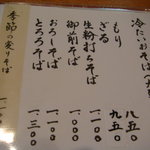 冷たいおそば
もり 八五〇
ざる 九五〇
生粉打ちそば 一、一〇〇
御前そば 一、一〇〇
おろしそば 一、三〇〇
とろろそば 一、三〇〇
季節の変りそば